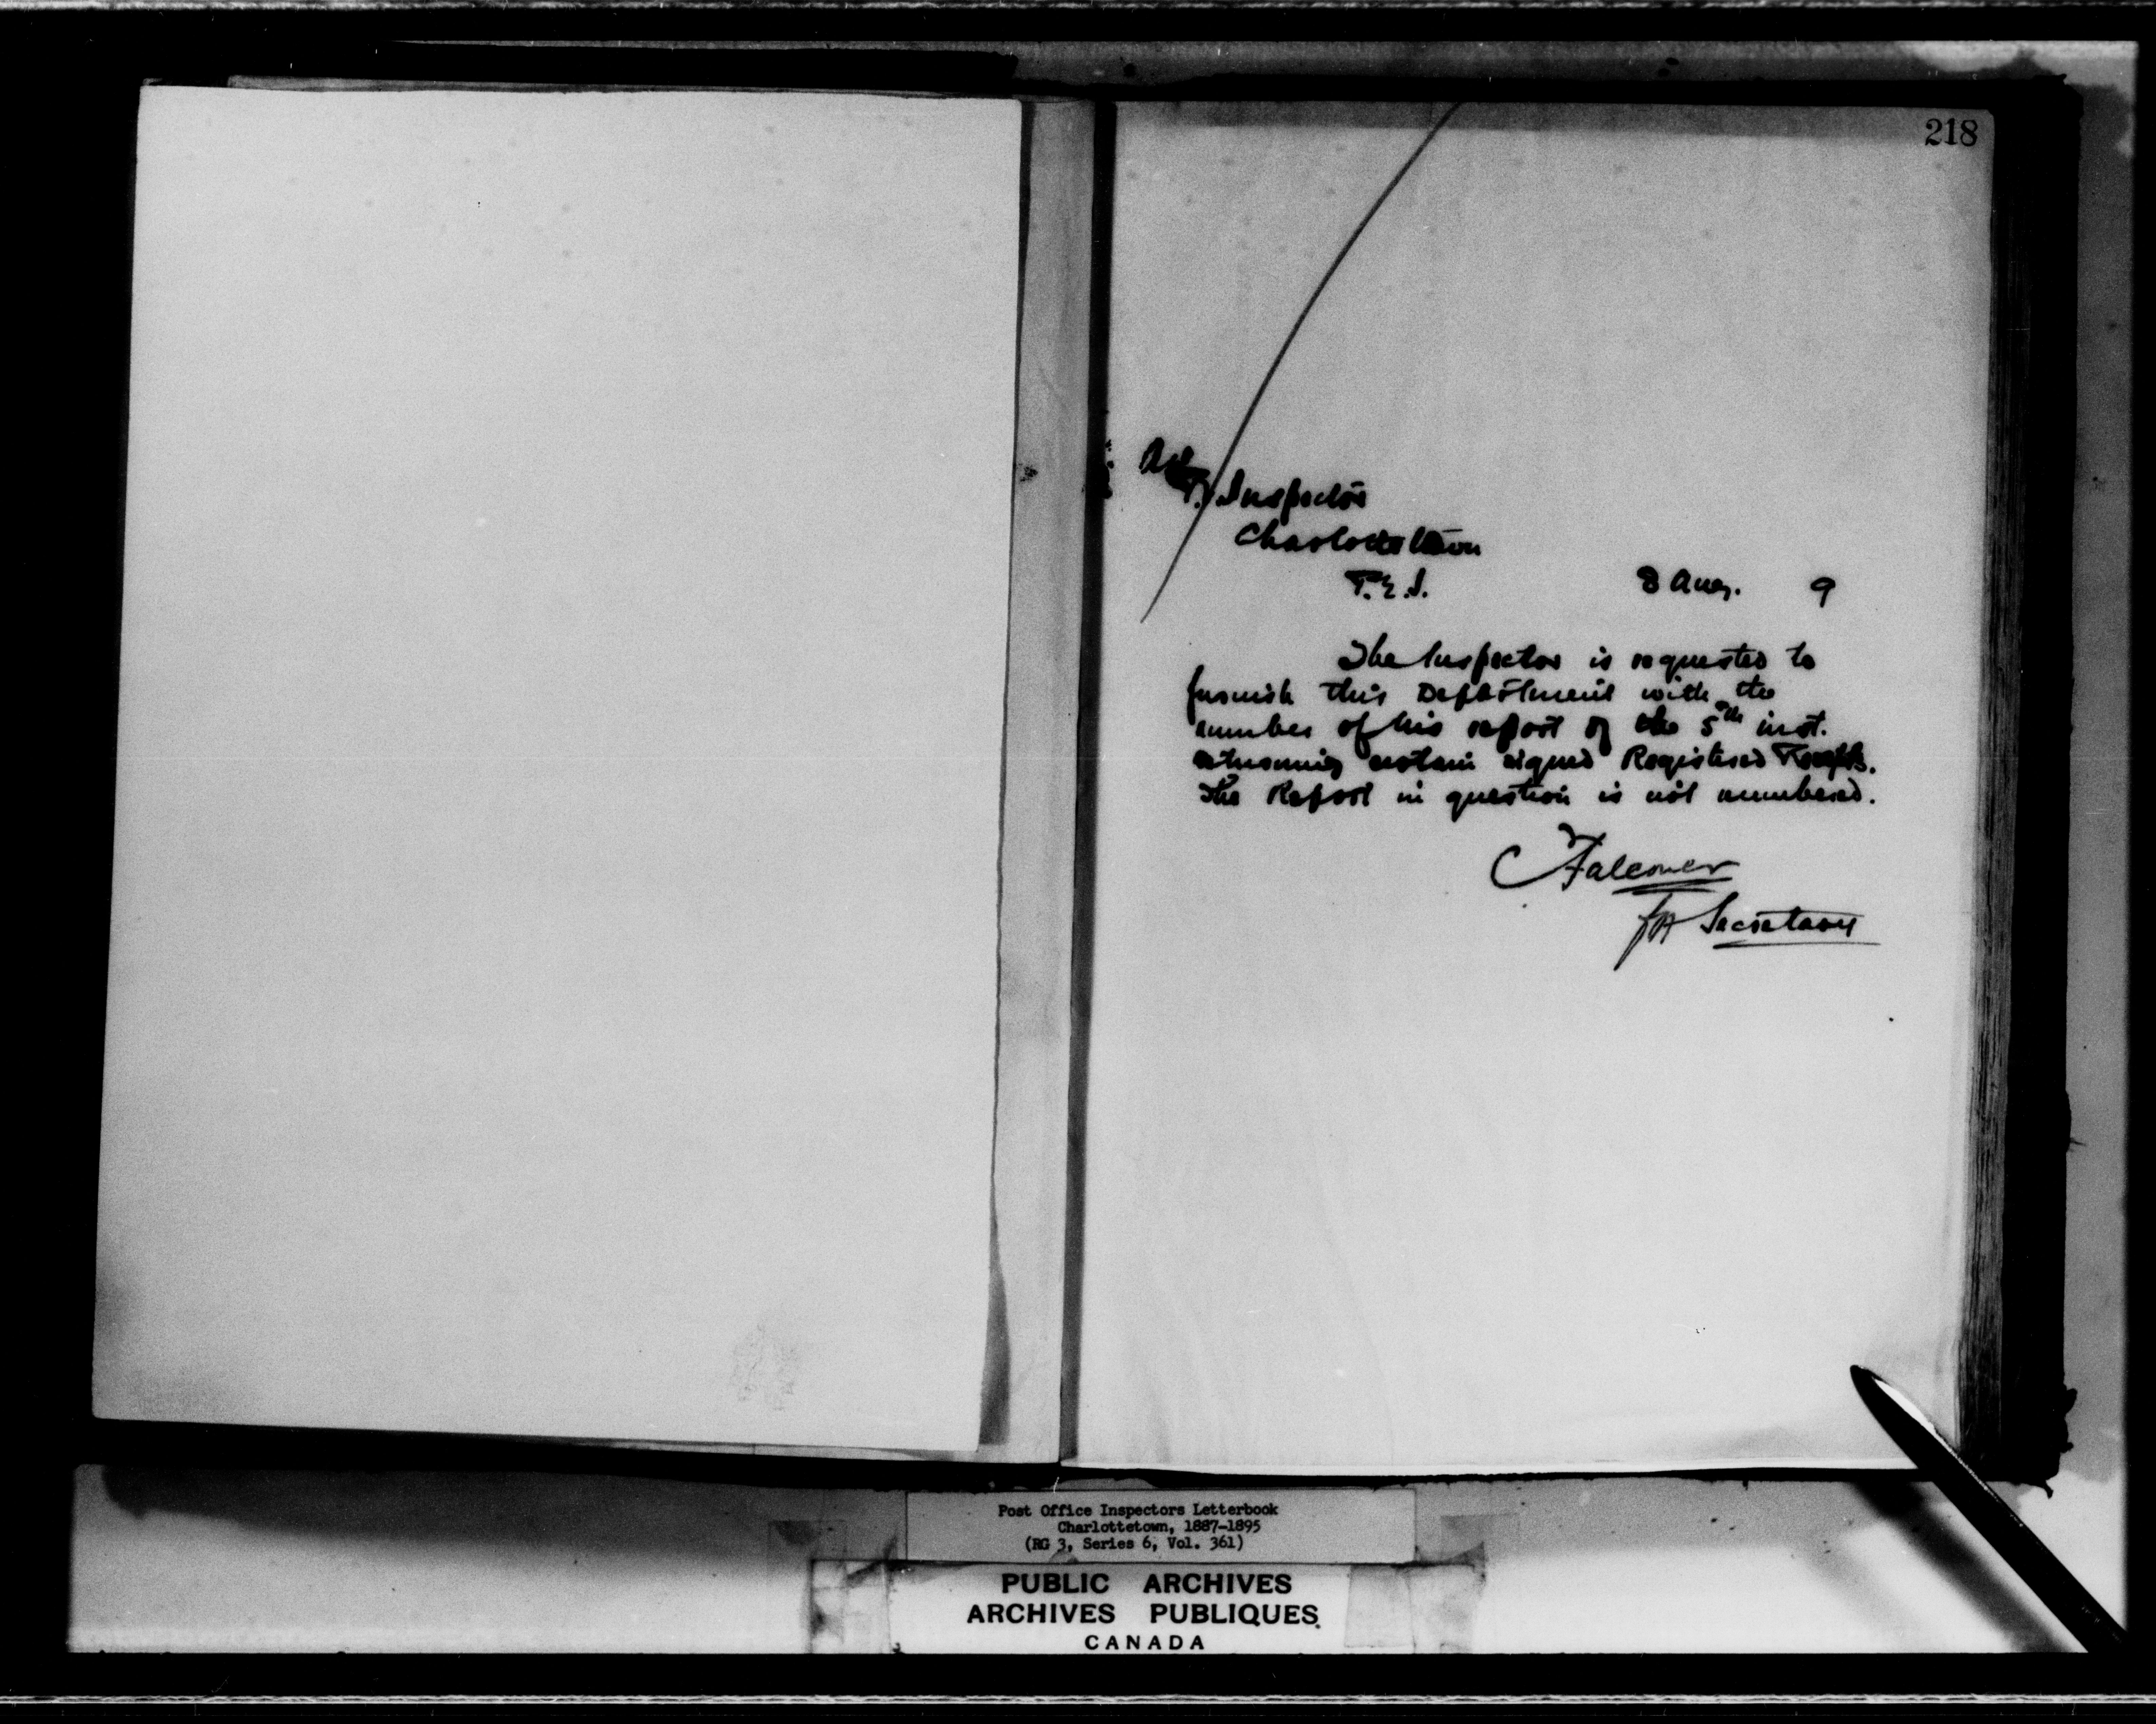 218
P.O. Inspector
Charlottetown
P.E.I. 8 Aug. 9
The Inspector is requested to
furnish this Department with the
number of his report of the 5th inst.
returning certain signed Registered Receipts.
The Report in question is not numbered.
C Falconer
for Secretary
Post Office Inspectors Letterbook
Charlottetown, 1887-1895
(RG 3, Series 6, Vol. 361)
PUBLIC ARCHIVES
ARCHIVES PUBLIQUES
CANADA